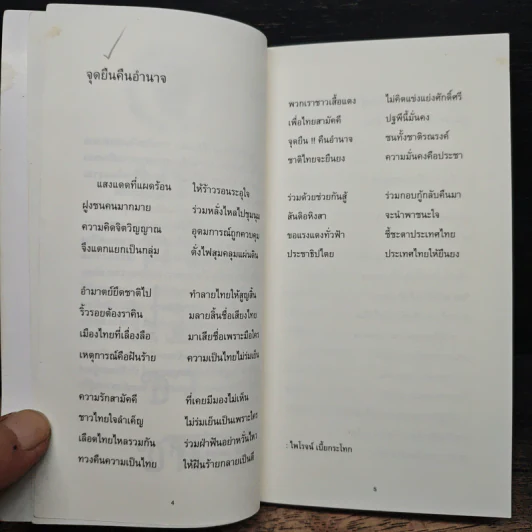 จุดยืนคืนอำนาจ
แสงแดดที่แผดร้อน ให้ร้าวรอนระอุใจ
ฝูงชนคนมากมาย ร่วมหลั่งไหลไปชุมนุม
ความคิดจิตวิญญาณ อุดมการณ์ถูกควบคุม
จึงแตกแยกเป็นกลุ่ม ดั่งไฟสุมคลุมแผ่นดิน
อำมาตย์ยึดชาติไป ทำลายไทยให้สูญสิ้น
ริ้วรอยต้องราคิน มลายสิ้นชื่อเสียงไทย
เมืองไทยที่เลื่องลือ มาเสียชื่อเพราะมือใคร
เหตุการณ์คือฝันร้าย ความเป็นไทยไม่ร่มเย็น
ความรักสามัคคี ที่เคยมีมองไม่เห็น
ชาวไทยใจลำเค็ญ ไม่ร่มเย็นเป็นเพราะใคร
เลือดไทยไหลรวมกัน ร่วมฝ่าฟันอย่าหวั่นไหว
ทวงคืนความเป็นไทย ให้ฝันร้ายกลายเป็นดี
4
พวกเราชาวเสื้อแดง ไม่คิดแข่งแย่งศักดิ์ศรี
เพื่อไทยสามัคคี ปฐพีนี้มั่นคง
จุดยืน !! คืนอำนาจ ชนทั้งชาติรณรงค์
ชาติไทยจะยืนยง ความมั่นคงคือประชา
ร่วมด้วยช่วยกันสู้ ร่วมกอบกู้กลับคืนมา
สันติอหิงสา จะนำพาชนะใจ
ขอแรงแดงทั่วฟ้า ชี้ชะตาประเทศไทย
ประชาธิปไตย ประเทศไทยให้ยืนยง
: ไพโรจน์ เบี้ยกระโทก